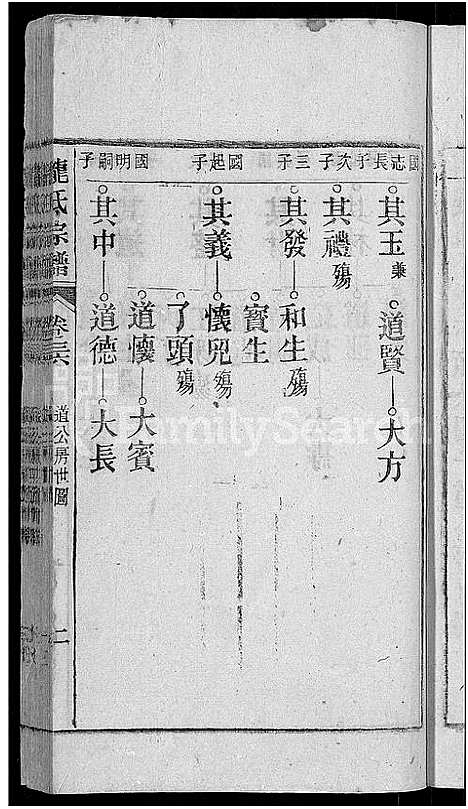 國志長子
次子
三子
國起子
國明嗣子
其玉 兼
其禮 殤
其發
其義
其中
道賢
和生 殤
寶生
懷兒 殤
了頭 殤
道懷
道德
大方
大賓
大長
龍氏宗譜
卷三六
道公房世圖
二
FamilySearch